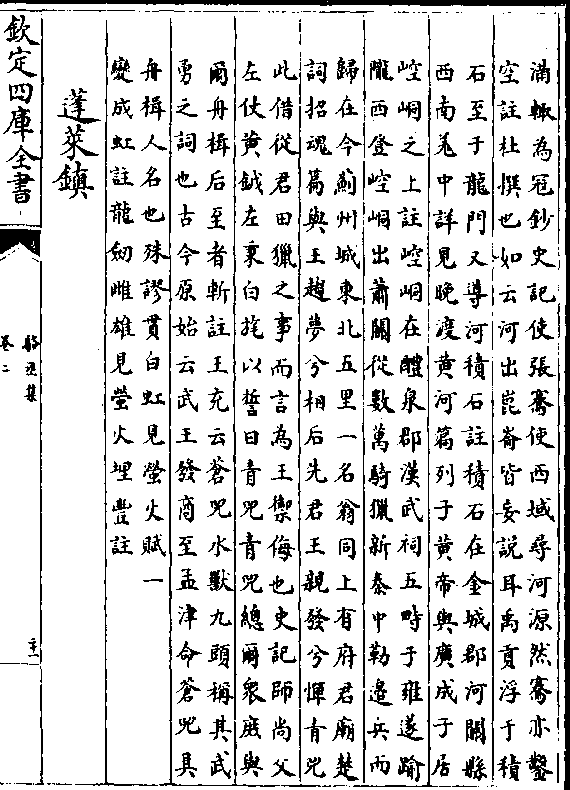 滿輙為冦鈔史記使張騫使西域尋河源然騫亦鑿
空註杜撰也如云河出崑崙皆妄説耳禹貢浮于積
石至于龍門又導河積石註積石在金城郡河關縣
西南羌中詳見晚渡黄河篇列于黄帝與廣成子居
崆峒之上註崆峒在醴泉郡漢武祠五畤于雍遂踰
隴西登崆峒出蕭關從數萬騎獵新秦中勒邉兵而
歸在今薊州城東北五里一名翁同上有府君廟楚
詞招魂篇與王趨夢兮相后先君王親發兮憚青兕
此借從君田獵之事而言為王禦侮也史記師尚父
左仗黄鉞左秉白旄以誓曰青兕青兕總爾衆庶與
爾舟楫后至者斬註王充云蒼兕水獸九頭稱其武
勇之詞也古今原始云武王發商至孟津命蒼兕具
舟楫人名也殊謬貫白虹見螢火賦一
變成虹註龍劒雌雄見螢火埋豐註
蓬萊鎮
欽定四庫全書
駱丞集
卷二